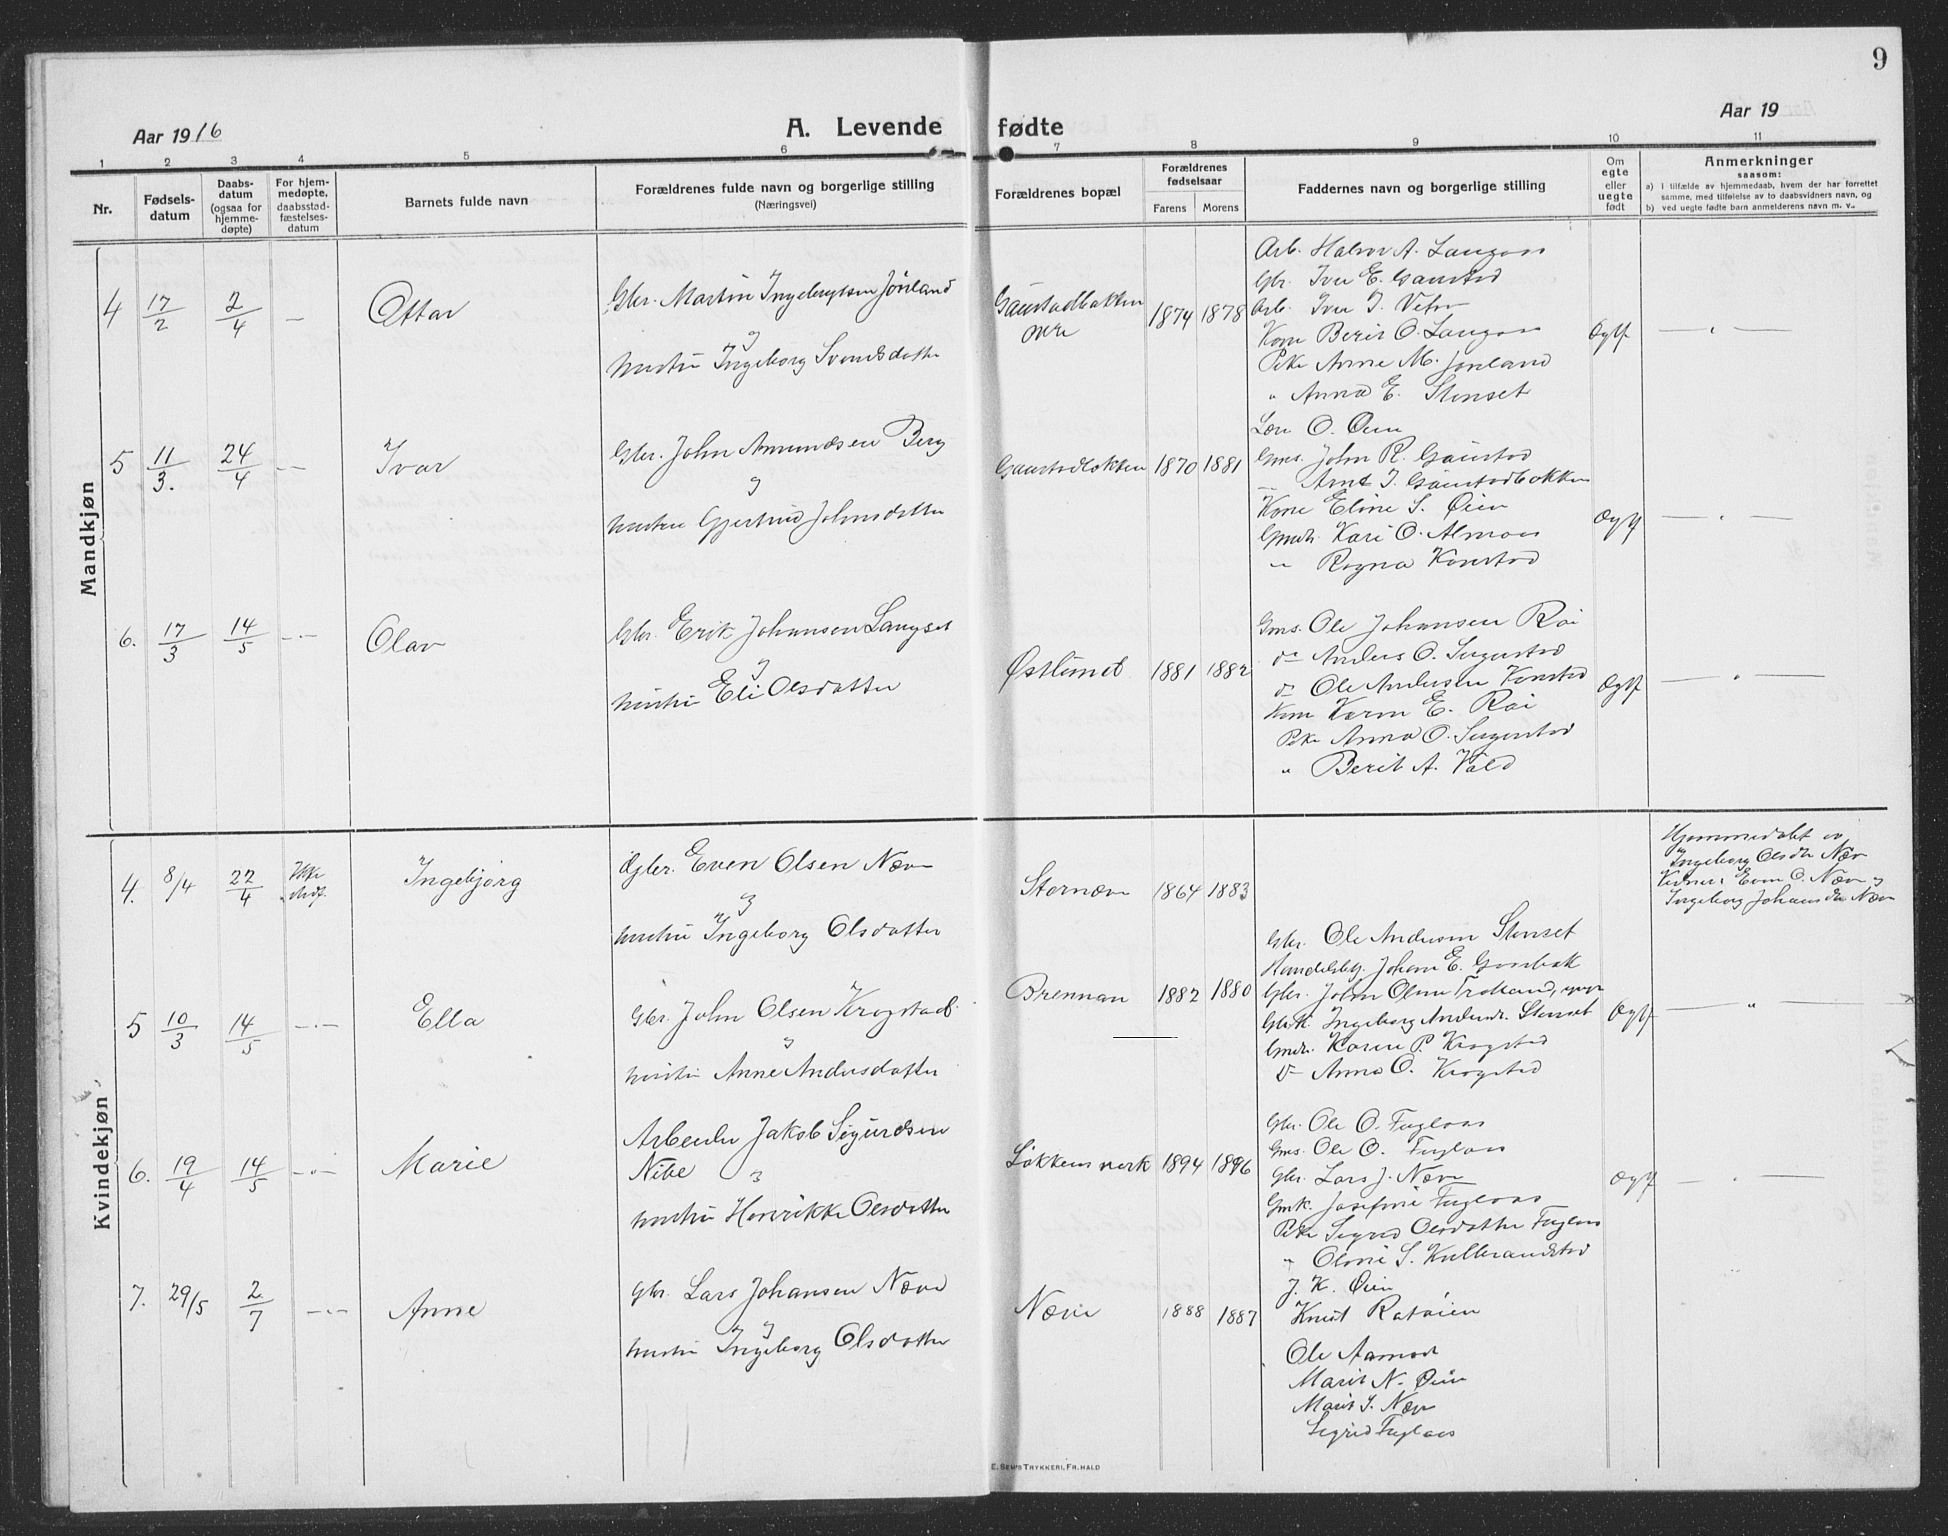 9
Aar 1916
A. Levende fødte
Aar 19
1 2 3 4 5 6 7 8 9 10 11
Nr.
Fødsels-
datum
Daabs-
datum
(ogsaa for
hjemme-
døpte)
For hjem-
medøpte,
daabsstad-
fæstelses-
datum
Barnets fulde navn
Forældrenes fulde navn og borgerlige stilling
(Næringsvei)
Forældrenes bopæl
Forældrenes
fødselsaar
Farens Morens
Faddernes navn og borgerlige stilling
Om
egte
eller
uegte
født
Anmerkninger
saasom:
a) i tilfælde av hjemmedaab, hvem der har forrettet
samme, med tilføielse av to daabsvidners navn, og
b) ved uegte fødte barn anmelderens navn m. v.
Mandkjøn
4 17/2 2/4 — Ottar
Gbr. Martin Ingebrigtsen Jønland
og
hustru Ingeborg Svendsdatter
Gaustadbakken
øvre
1874 1878
Arb. Halvor A. Langaas
Gbr. Iver E. Gaustad
Arb. Iver J.
Kone Berit O. Langaas
Pike Anne M. Jønland
" Anna E. Stenset
Ægtf — " —
5 11/3. 24/4 — Ivar
Gbr. John Amundsen Berg
og
hustru Gjertrud Johnsdatter
Gaustadbakken 1870 1881
O. Øien
Gms. John R. Gaustad
— Arnt J. Gaustadbakken
Kone Eline S. Øien
Gmdtr. Kari O. Almaas
— Ragna Konstad
Ægtf — " —
6. 17/3 14/5 — Olav
Gbr. Erik Johansen Langset
og
hustru Eli Olsdatter
Østlund 1881 1882
Gms. Ole Johansen Røi
do Anders O.
do Ole Andersen Konstad
Kone Karen E. Røi
Pike Anna O.
" Berit A. Vold
Ægtf — " —
Kvindekjøn
4. 8/4 22/4 Ikke Ingebjørg
Gbr. Even Olsen Næve
og
hustru Ingeborg Olsdatter
Stornæve 1864 1883
Hjemmedøbt av
Ingeborg Olsdtr Næve
Vidner: Even O. Næve og
Ingeborg Johansdtr Næve
5 10/3 14/5 — Ella
Gbr. John Olsen Krogstad
og
hustru Anne Andersdatter
Brennan 1882 1880
Gbr. Ole Andersen Stenset
Handelsbtj. Johan E.
Gbr. John Olsen
Gbrk. Ingeborg Andersdr. Stenset
Gmdr. Karen P. Krogstad
do Anna O. Krogstad
Ægtf — " —
6. 19/4 14/5 — Marie
Arbeider Jakob Sigurdsen
Nibe og
hustru Henrikke Olsdatter
Løkkens verk 1894 1896
Gbr. Ole O. Fuglaas
Gms. Ole O. Fuglaas
Gbr. Lars J. Næve
Gmk. Josefine Fuglaas
Pike Sigrid Olsdatter Fuglaas
" Oline S. Kulbrandstad
Ægtf — " —
7. 29/5 2/7 — Anne
Gbr. Lars Johansen Næve
og
hustru Ingeborg Olsdatter
Næve 1888 1887
J. K. Øien
Knut Ratøien
Ole
Marit N. Øien
Marit J. Næve
Sigrid Fuglaas
E. SEM'S TRYKKERI, FR.HALD